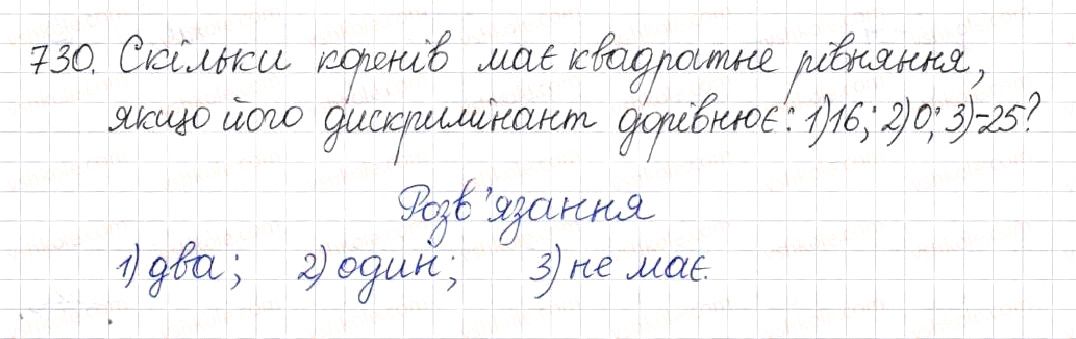 730. Скільки коренів має квадратне рівняння,
якщо його дискримінант дорівнює: 1) 16; 2) 0; 3) -25?
Розв'язання
1) два; 2) один; 3) не має.